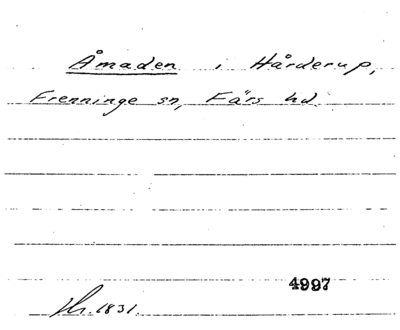 Åmaden i Hårderup,
Frenninge sn, Färs hd.
4997
Hr. 1831.